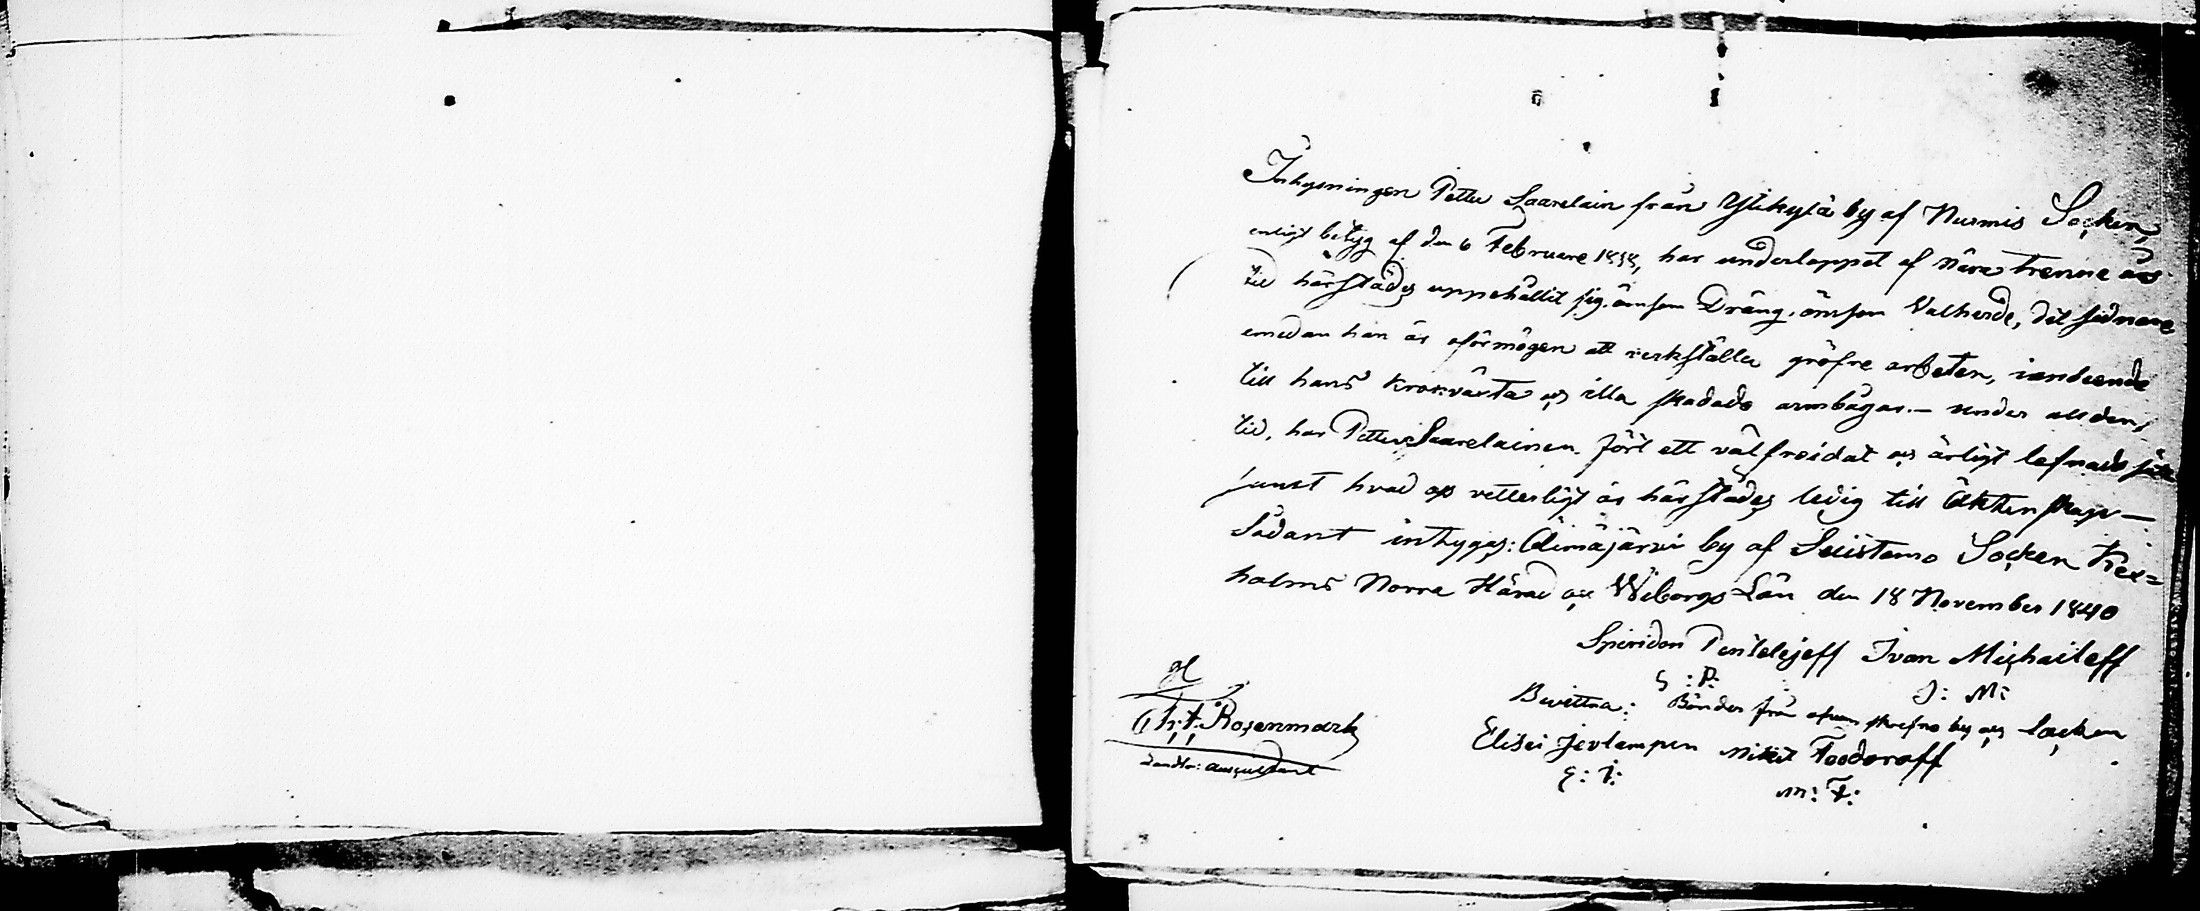 Inhysningen Petter Saarelain från Ylikylä by af Nurmis Socken,
enligt betyg af den 6 Februarie 1838, har underloppet af nära trenne års
tid härstädes uppehållit sig, ömsom Dräng, ömsom Vallherde, det sednare
emedan han är oförmögen att verkställa gröfre arbeten, i anseende
till hans krokväxta och illa skadade armbågar. – under all den
tid, har Petter Saarelainen fört ett välfreidat och ärligt lefnads sätt
samt hvad os vetterligt är härstädes ledig till Äktenskap –
Sådant intygas: Äimäjärvi by af Suistamo Socken Kex=
holms Norra Härad och Wiborgs Län den 18 November 1840
Spiridon Pentelejeff Ivan Michaileff
S: P: I: M:
Bevittna: Bönder från ofvan skrefne by och Socken
Elisei Jevlampen Mikit Foodoroff
E: J: M: F:
Chr. A. Rosenmark
Landtm: Auscultant